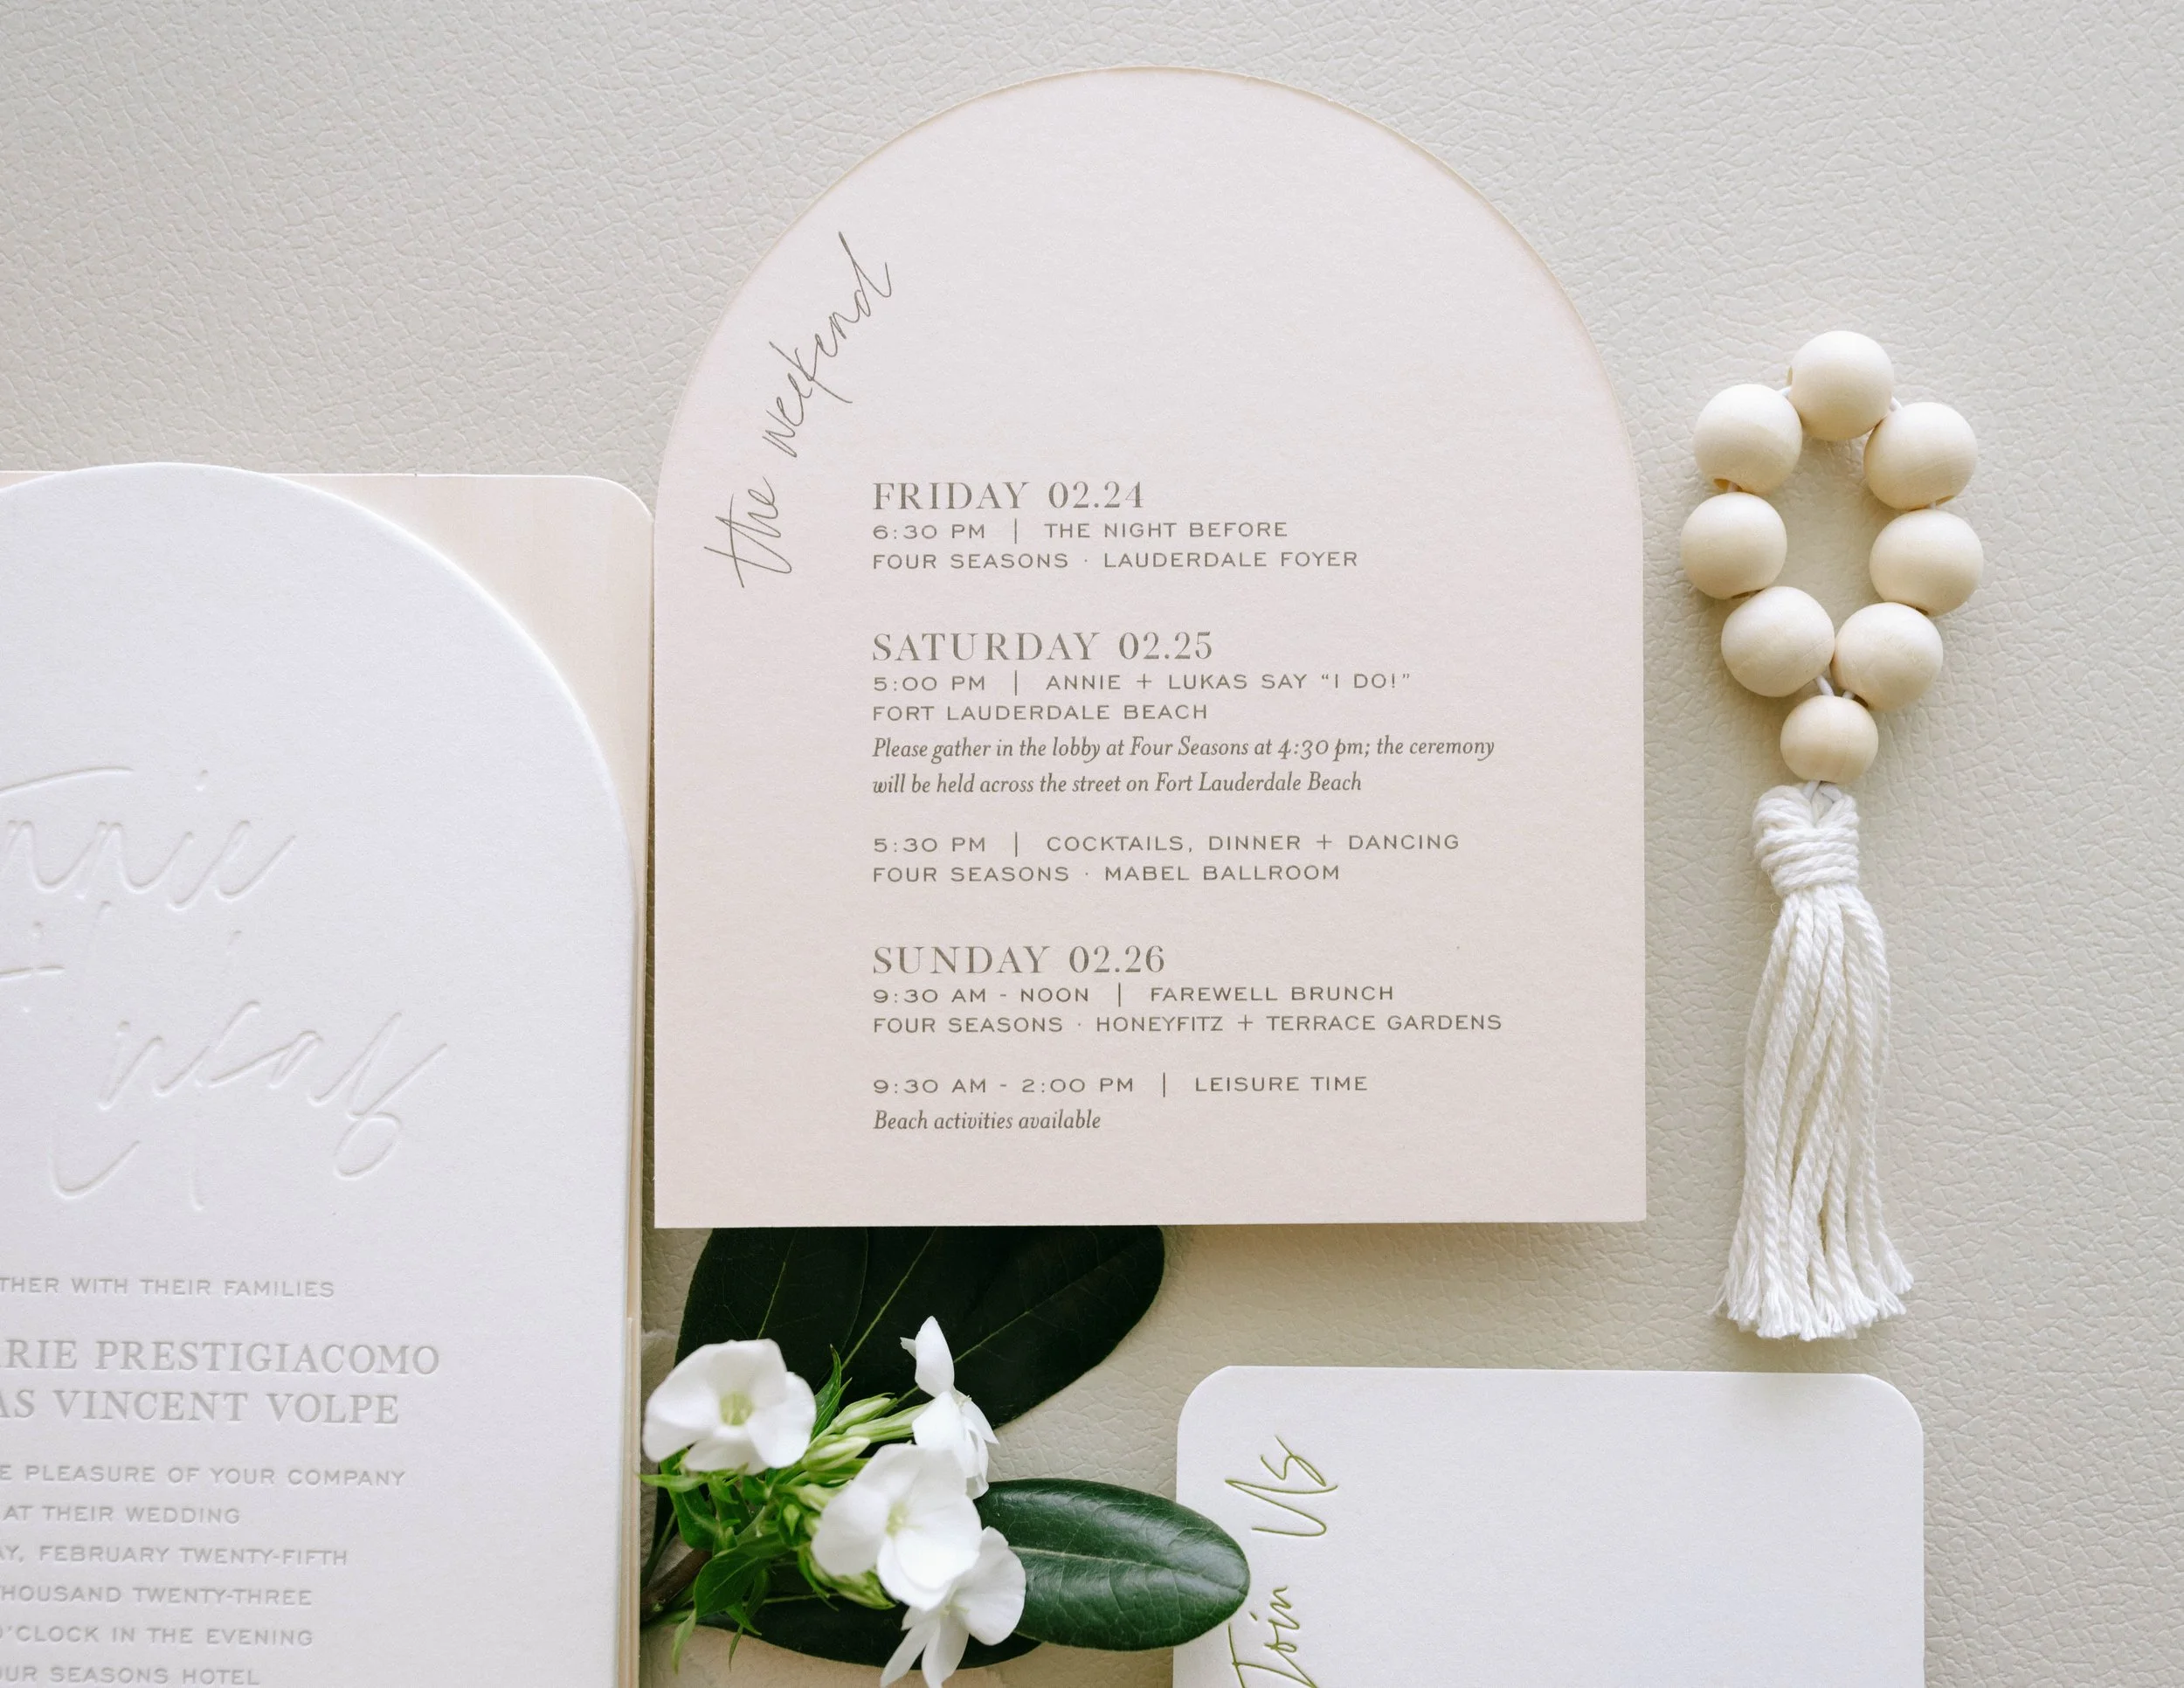 the weekend
FRIDAY 02.24
6:30 PM | THE NIGHT BEFORE
FOUR SEASONS · LAUDERDALE FOYER
SATURDAY 02.25
5:00 PM | ANNIE + LUKAS SAY “I DO!”
FORT LAUDERDALE BEACH
Please gather in the lobby at Four Seasons at 4:30 pm; the ceremony
will be held across the street on Fort Lauderdale Beach
5:30 PM | COCKTAILS, DINNER + DANCING
FOUR SEASONS · MABEL BALLROOM
SUNDAY 02.26
9:30 AM - NOON | FAREWELL BRUNCH
FOUR SEASONS · HONEYFITZ + TERRACE GARDENS
9:30 AM - 2:00 PM | LEISURE TIME
Beach activities available
nnie
ukas
THER WITH THEIR FAMILIES
RIE PRESTIGIACOMO
AS VINCENT VOLPE
E PLEASURE OF YOUR COMPANY
AT THEIR WEDDING
AY, FEBRUARY TWENTY-FIFTH
HOUSAND TWENTY-THREE
O’CLOCK IN THE EVENING
OUR SEASONS HOTEL
Join Us